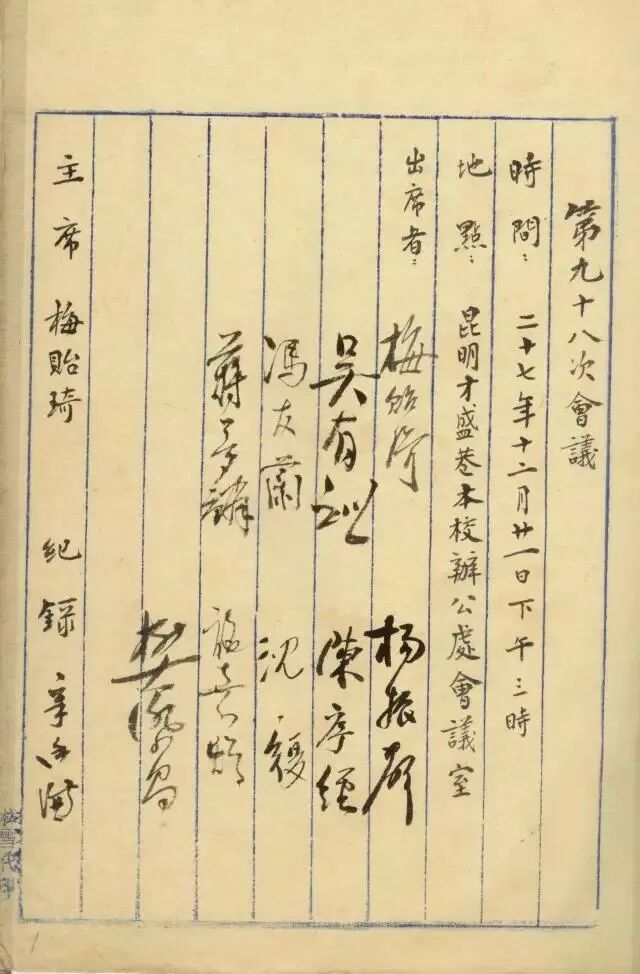 第九十八次會議
時間：二十七年十二月廿一日下午三時
地點：昆明才盛巷本校辦公處會議室
出席者：梅貽琦 楊振聲
吳有訓 陳序經
馮友蘭 沈履
蔣夢麟 施嘉煬
樊際昌
主席 梅貽琦 紀錄 章廷謙